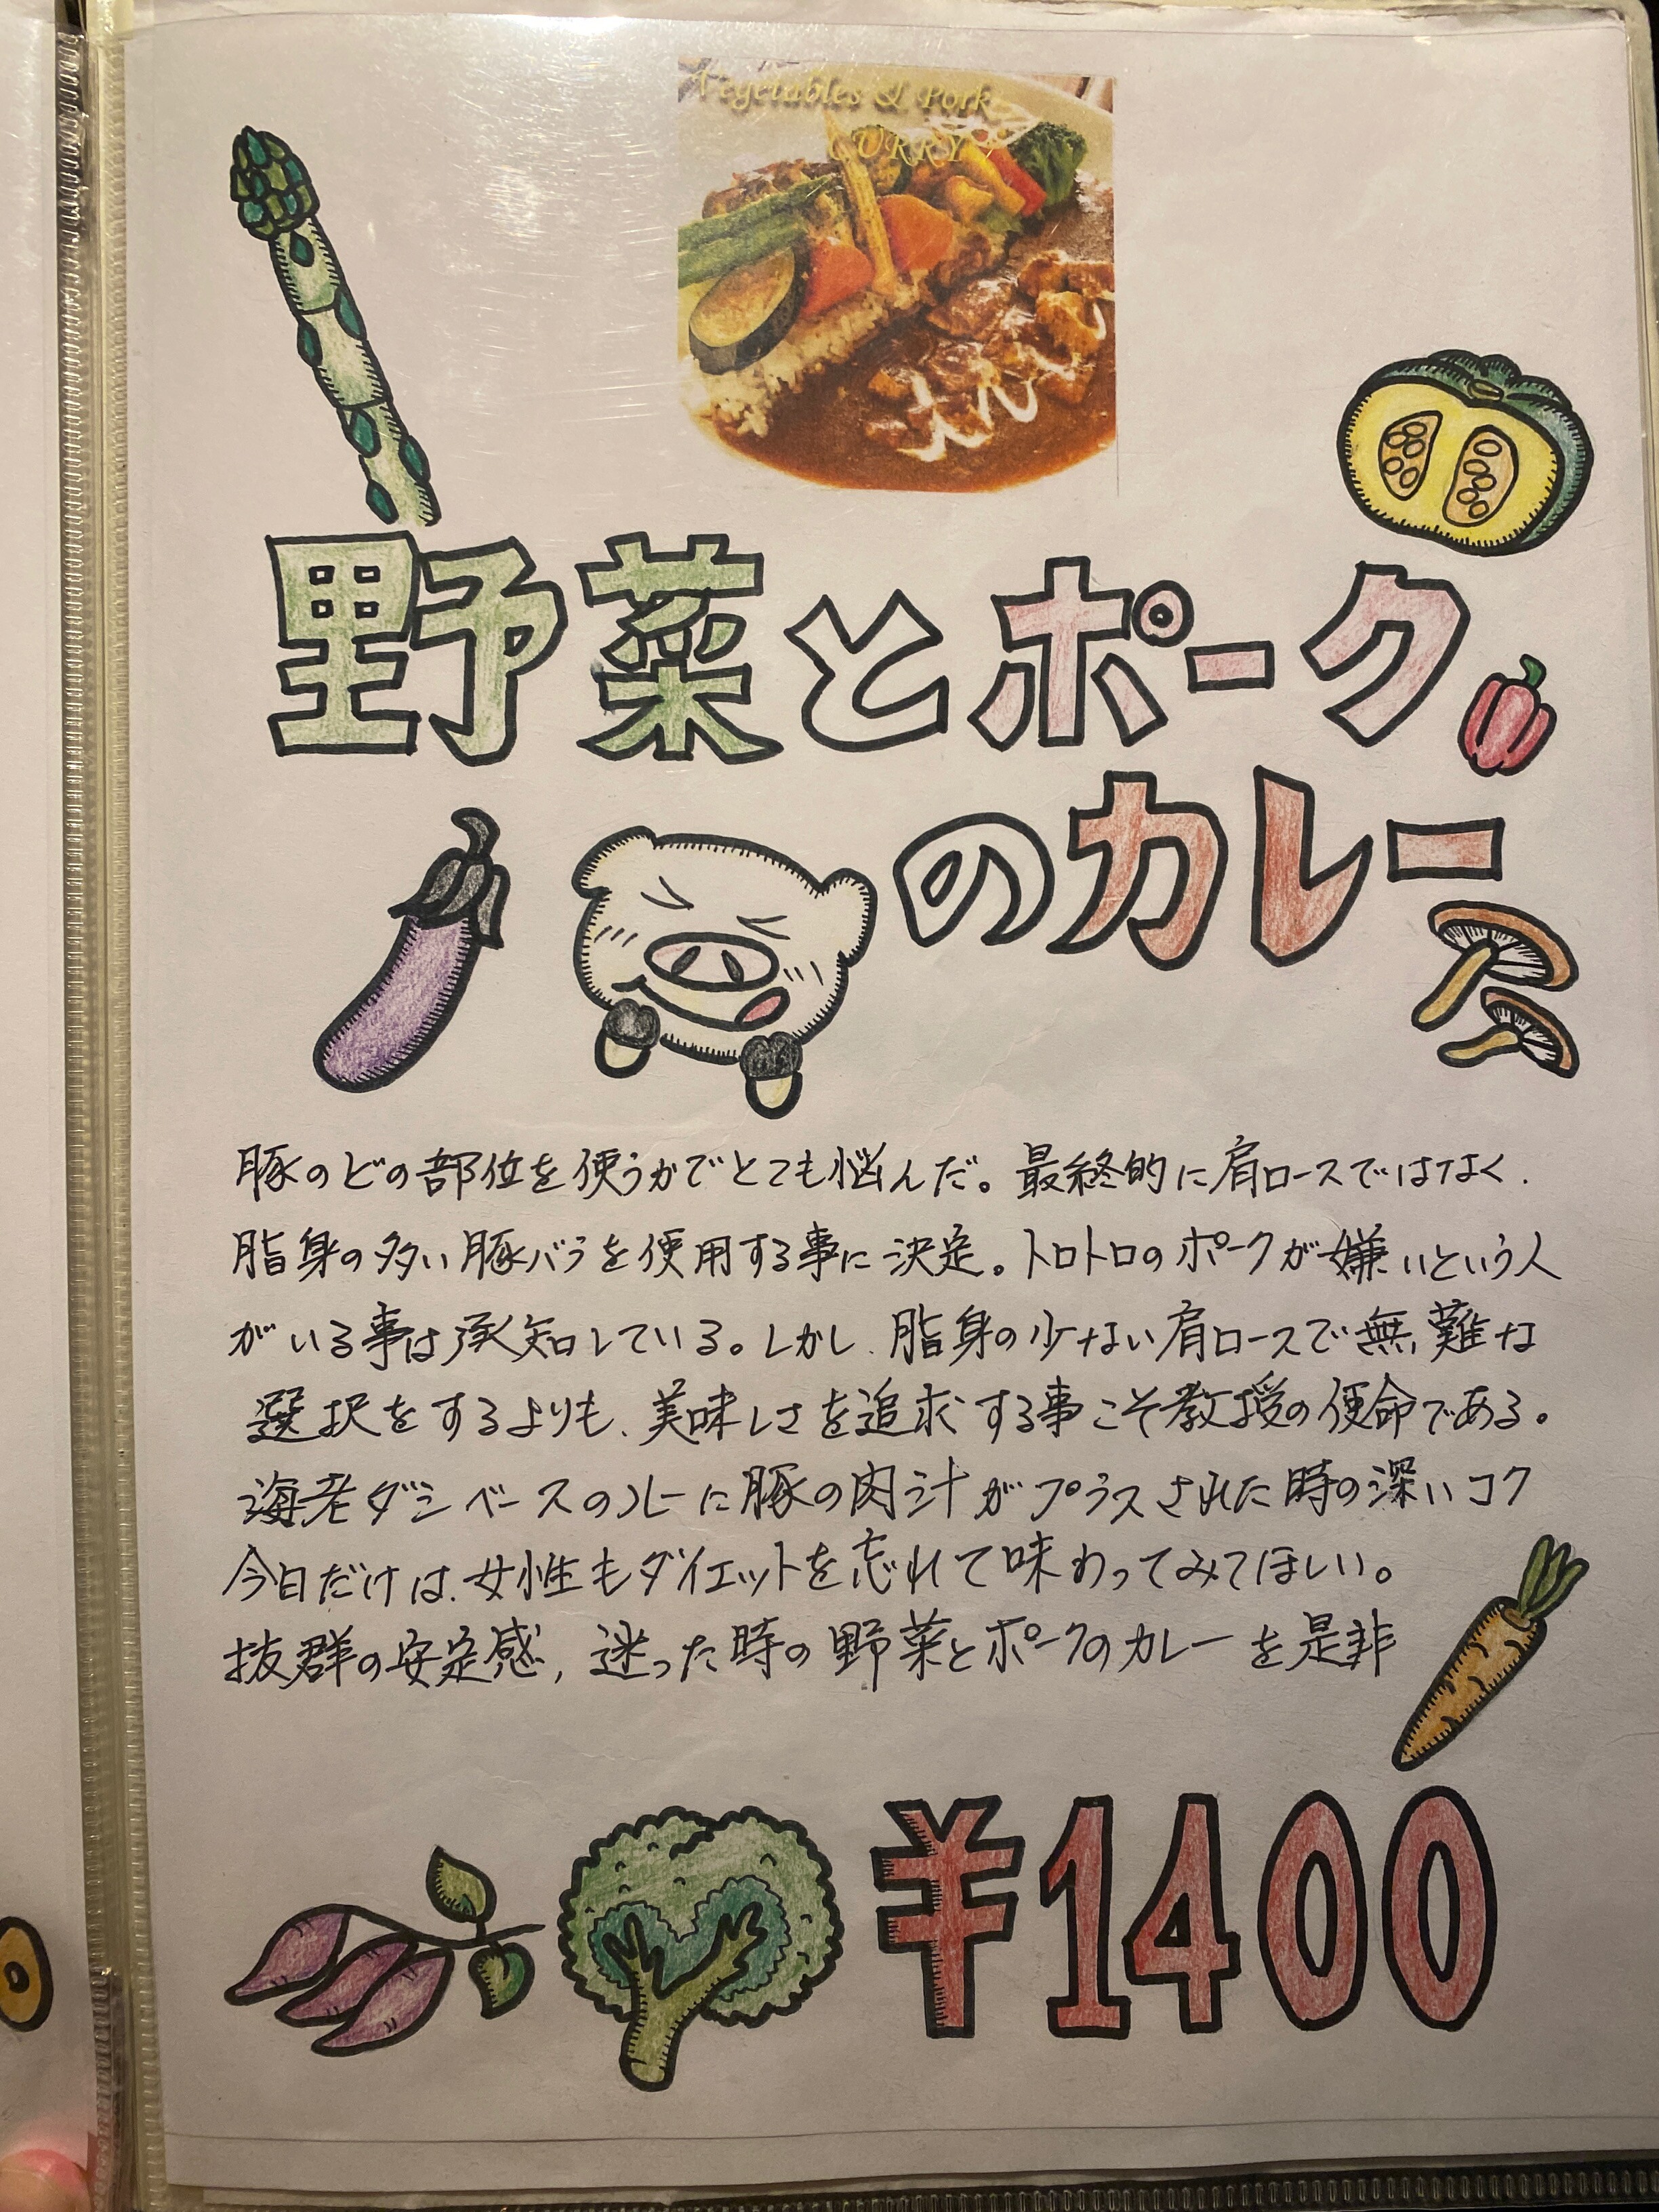 Vegetables & Pork
CURRY
野菜とポーク
のカレー
豚のどの部位を使うかでとても悩んだ。最終的に肩ロースではなく、
脂身の多い豚バラを使用する事に決定。トロトロのポークが嫌いという人
がいる事は承知している。しかし、脂身の少ない肩ロースで無難な
選択をするよりも、美味しさを追求する事こそ教授の使命である。
海老ダシベースのルーに豚の肉汁がプラスされた時の深いコク
今日だけは、女性もダイエットを忘れて味わってみてほしい。
抜群の安定感、迷った時の野菜とポークのカレーを是非
¥1400